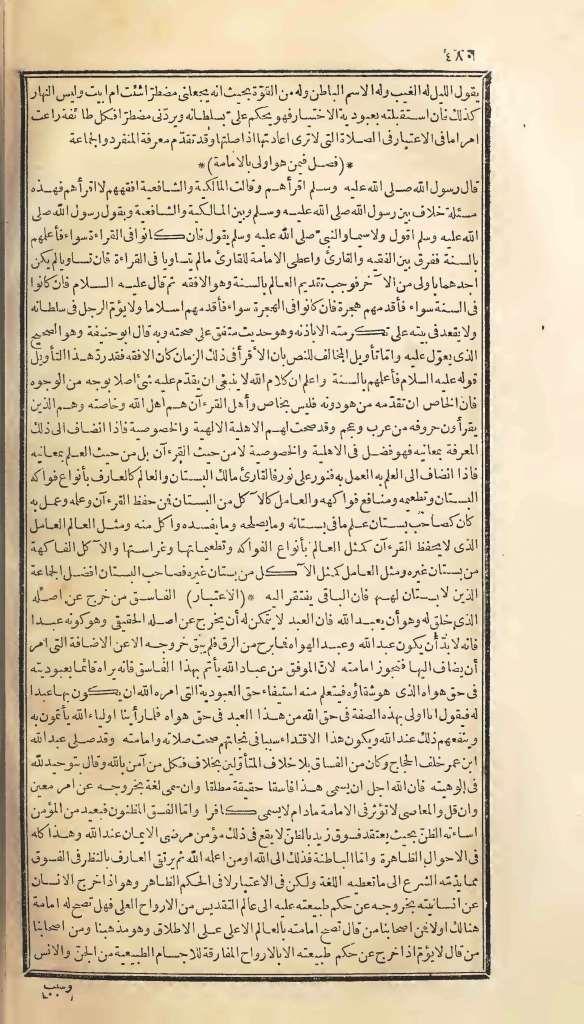 ٤٨٦
يقول الليل له الغيب وله الاسم الباطن وله من القوّة بحيث انه يجعلني مضطرّا شئت ام ابيت وليس النهار
كذلك فان استقبلته بعبودية الاختيار فهو يحكم علىّ بسلطانه ويردّنى مضطرّا فكل طائفة راعت
امرا ما فى الاعتبار فى الصلاة التى لا ترى اعادتها اذا صلتها وقد تقدّم معرفة المنفرد والجماعة
*(فصل فيمن هو اولى بالامامة)*
قال رسول الله صلى الله عليه وسلم اقرأهم وقالت المالكية والشافعية افقههم لا اقرأهم فهذه
مسئلة خلاف بين رسول الله صلى الله عليه وسلم وبين المالكية والشافعية وبقول رسول الله صلى
الله عليه وسلم اقول ولا سيما والنبىّ صلى الله عليه وسلم يقول فان كانوا فى القراءة سواء فأعلمهم
بالسنة ففرق بين الفقيه والقارئ واعطى الامامة للقارئ مالم يتساويا فى القراءة فان تساويا لم يكن
احدهما باولى من الآخر فوجب تقديم العالم بالسنة وهو الافقه ثم قال عليه السلام فان كانوا
فى السنة سواء فأقدمهم هجرة فان كانوا فى الهجرة سواء فأقدمهم اسلاما ولا يؤمّ الرجل فى سلطانه
ولا يقعد فى بيته على تكرمته الا باذنه وهو حديث متفق على صحته وبه قال ابو حنيفة وهو الصحيح
الذى يعوّل عليه وامّا تأويل المخالف للنص بان الاقرأ فى ذلك الزمان كان الافقه فقد ردّ هذا التأويل
قوله عليه السلام فأعلمهم بالسنة واعلم ان كلام الله لا ينبغى ان يقدّم عليه شئ اصلا بوجه من الوجوه
فان الخاص ان تقدّمه من هو دونه فليس بخاص وأهل القرءآن هم اهل الله وخاصته وهم الذين
يقرأون حروفه من عرب وعجم وقد صحت لهم الاهلية الالهية والخصوصية فاذا انضاف الى ذلك
المعرفة بمعانيه فهو فضل فى الاهلية والخصوصية لا من حيث القرءآن بل من حيث العلم بمعانيه
فاذا انضاف الى العلم به العمل به فنور على نور فالقارئ مالك البستان والعالم كالعارف بأنواع فواكه
البستان وتطعيمه ومنافع فواكهه والعامل كالآكل من البستان فمن حفظ القرءآن وعلمه وعمل به
كان كصاحب بستان علم ما فى بستانه وما يصلحه وما يفسده واكل منه ومثل العالم العامل
الذى لا يحفظ القرءآن كمثل العالم بأنواع الفواكه وتطعيماتها وغراستها والآكل الفاكهة
من بستان غيره ومثل العامل كمثل الآكل من بستان غيره فصاحب البستان افضل الجماعة
الذين لا بستان لهم فان الباقى يفتقر اليه *(الاعتبار) الفاسق من خرج عن اصله
الذى خلق له وهو أن يعبد الله فان العبد لا يتمكن له أن يخرج عن اصله الحقيقى وهو كونه عبدا
فانه لا بدّ أن يكون عبد الله وعبد الهواه فما برح من الرق فلم يبق خروجه الا عن الاضافة التى امر
أن يضاف اليها فتجوز امامته لانّ الموفق من عباد الله يأتم بهذا الفاسق فانه يراه قائما بعبوديته
فى حق هواه الذى هو شقاؤه فيتعلم منه استيفاء حق العبودية التى امره الله ان يكون بها عبدا
له فيقول انا اولى بهذه الصفة فى حق الله من هذا العبد فى حق هواه فلما رأينا اولياء الله يأتمون به
وينفعهم ذلك عند الله ويكون هذا الاقتداء سببا فى نجاتهم صحت صلاته وامامته وقد صلى عبد الله
ابن عمر خلف الحجاج وكان من الفساق بلا خلاف المتأوّلين بخلاف فكل من آمن بالله وقال بتوحيد الله
فى إلوهيته فان الله اجل ان يسمى هذا فاسقا حقيقة مطلقا وان سمى لغة بخروجه عن امر معين
وان قل والمعاصى لا تؤثر فى الامامة ما دام لا يسمى كافرا وامّا الفسق المظنون فبعيد من المؤمن
اساءته الظنّ بحيث يعتقد فسوق زيد بالظنّ لا يقع فى ذلك مؤمن مرضى الايمان عند الله وهذا كله
فى الاحوال الظاهرة وامّا الباطنة فذلك الى الله اومن اعلمه الله ثم يرتقى العارف بالنظر فى الفسوق
مما يذمّه الشرع الى ما تعطيه اللغة ولكن فى الاعتبار لا فى الحكم الظاهر وهو اذا خرج الانسان
عن انسانيته بخروجه عن حكم طبيعته عليه الى عالم التقديس من الارواح العلى فهل تصح له امامة
هنالك اولا فمن اصحابنا من قال تصح امامته بالعالم الاعلى على الاطلاق وهو مذهبنا ومن اصحابنا
من قال لا يؤمّ اذا خرج عن حكم طبيعته الا بالارواح المفارقة للاجسام الطبيعية من الجنّ والانس
وسبب